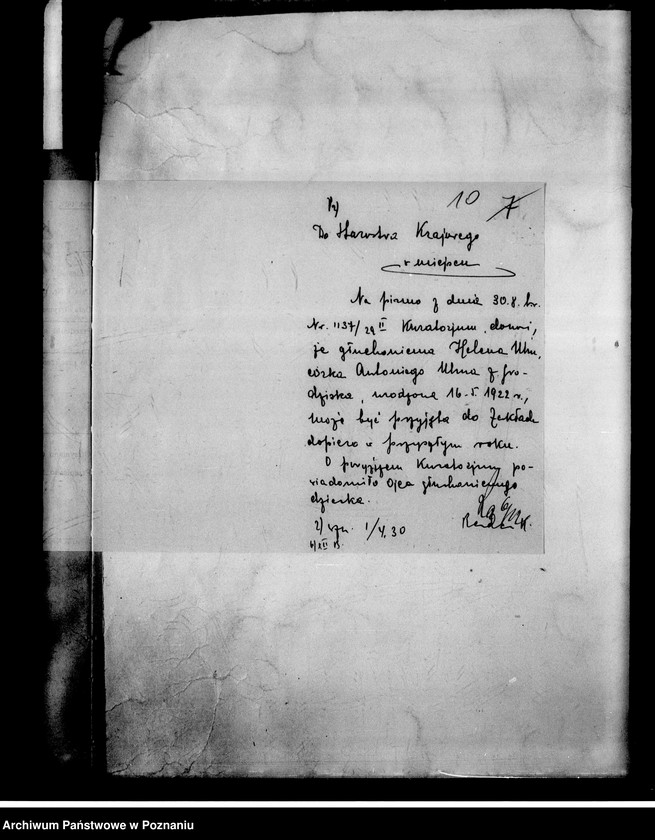 10 7
1)
Do Starostwa Krajowego
w miejscu
Na pismo z dnia 30.8. br.
Nr. 1137/29 II Kuratorjum donosi,
że głuchoniema Helena Ulm,
córka Antoniego Ulma z Gro-
dziska, urodzona 16.5.1922 r.,
może być przyjęta do Zakładu
dopiero w przyszłym roku.
O powyższem Kuratorjum po-
wiadomiło Ojca głuchoniemego
dziecka.
2) 1/4.30